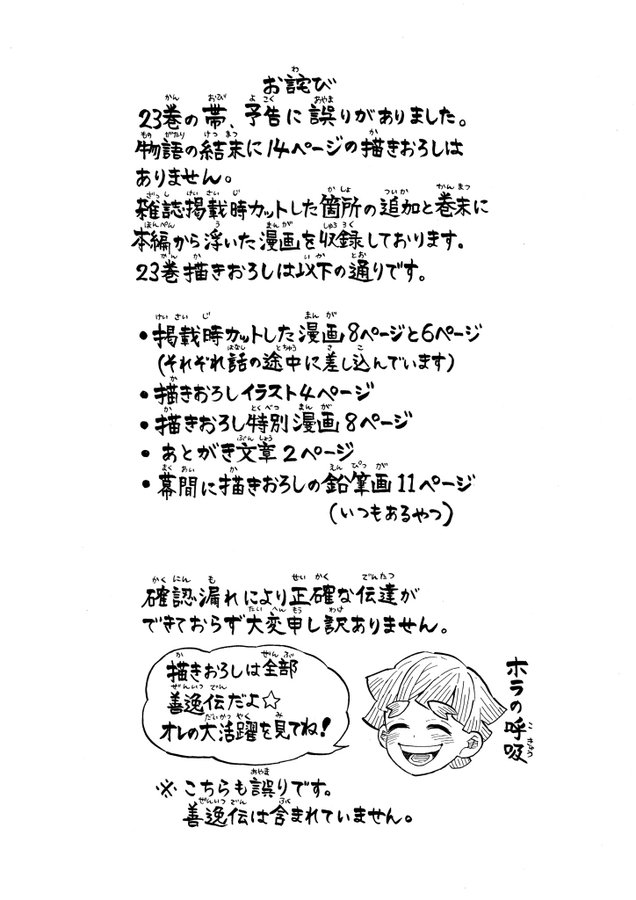 お詫び
23巻の帯、予告に誤りがありました。
物語の結末に14ページの描きおろしは
ありません。
雑誌掲載時カットした箇所の追加と巻末に
本編から浮いた漫画を収録しております。
23巻描きおろしは以下の通りです。
•掲載時カットした漫画8ページと6ページ
(それぞれ話の途中に差し込んでいます)
•描きおろしイラスト4ページ
•描きおろし特別漫画8ページ
•あとがき文章2ページ
•幕間に描きおろしの鉛筆画11ページ
(いつもあるやつ)
確認漏れにより正確な伝達が
できておらず大変申し訳ありません。
描きおろしは全部
善逸伝だよ☆
オレの大活躍を見てね!
ホラの呼吸
※こちらも誤りです。
善逸伝は含まれていません。